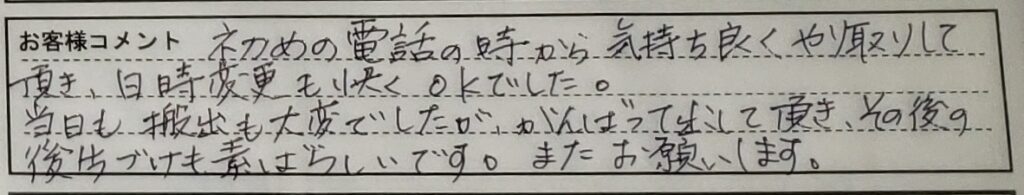 お客様コメント 初めの電話の時から気持ち良くやり取りして
頂き、日時変更も快くOKでした。
当日も搬出も大変でしたが、がんばって出して頂き、その後の
後片づけも素ばらしいです。またお願いします。